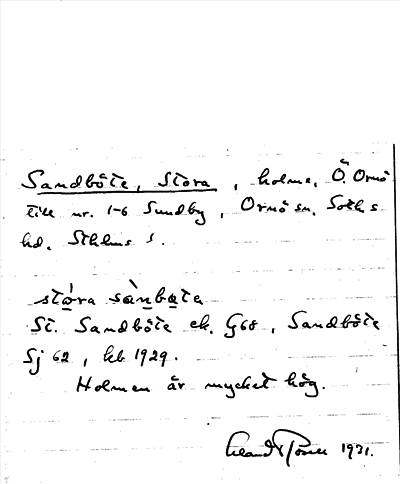 Sandböte, Stora, holme, Ö. Ornö
till nr. 1-6 Sundby, Ornö sn. Sotholms
hd. Sthlms l.
stó̱ra sàṉba̱te
St. Sandböte ek. G68, Sandböte
Sj 62, kb 1929.
Holmen är mycket hög.
1931.